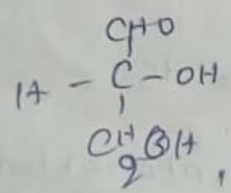 CHO
H - C - OH
CH2OH
,